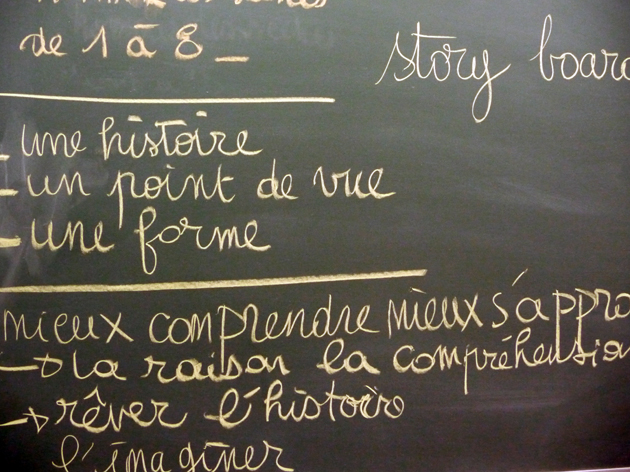 de 1 à 8 _
story board
- une histoire
- un point de vue
- une forme
mieux comprendre mieux s'appro
→ la raison la compréhension
→ rêver l'histoire
l'imaginer